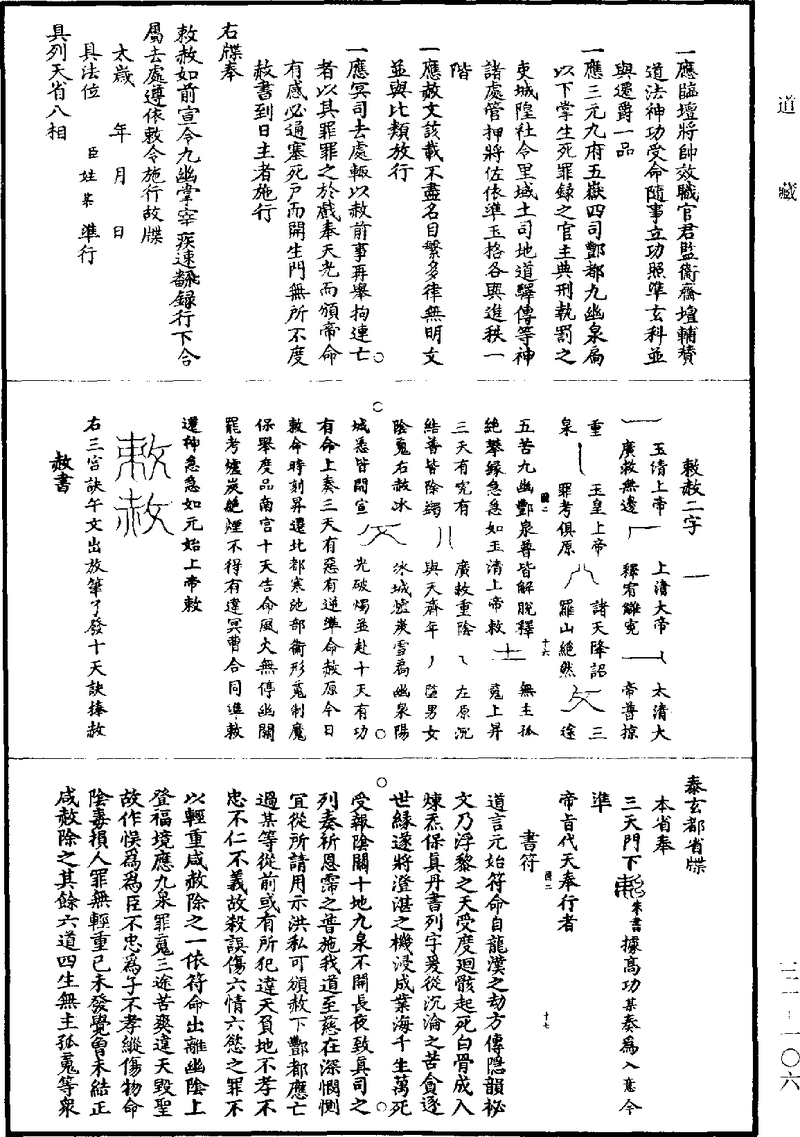 道藏
一應臨壇將帥效職官君監衛齋壇輔贊
道法神功受命隨事立功照準玄科並
與遷爵一品
一應三元九府五嶽四司酆都九幽泉扄
以下掌生死罪録之官主典刑執罰之
吏城隍社令里域土司地道驛傳等神
諸處管押將佐依準玉格各與進秩一
階
一應赦文該載不盡名目繁多律無明文
並與比類放行
一應冥司去處輙以赦前事再舉拘連亡
者以其罪罪之於戲奉天光而頒帝命
有感必通塞死戸而開生門無所不度
赦書到日主者施行
右牒奉
敕赦如前宣令九幽掌宰疾速翻録行下合
屬去處遵依敕令施行故牒
太歲 年 月 日
具法位 臣姓某 準行
具列天省八相
敕赦二字
玉清上帝 上清大帝 太清大
廣敕無邊 釋宥雜寃 帝普掠
重 玉皇上帝 諸天降詔 三
泉 罪考俱原 羅山絶然 途
五苦九幽酆泉尋皆解脫釋 無主孤
絶攀緣急急如玉清上帝敕 寃上昇
三天有寃有 廣赦重陰 左原沉
結善皆除蠲 與天齊年 陰男女
陰寃右赦冰 冰城爐炭雪爲幽泉陽
城悉皆開宣 光破燭並赴十天有功
有命上奏三天有惡有逆準命赦原今日
敕命時刻昇遷北都寒池部衛形寃制魔
保舉度品南宫十天告命風火無停幽關
罷考爐炭絶煙不得有違冥曹合同準敕
遷神急急如元始上帝敕
敕赦
右三宫訣午文出放筆了發十天訣捧赦
赦書
泰玄都省牒
本省奉
三天門下敕朱書據高功某奏爲入意今
準
帝旨代天奉行者
書符
道言元始符命自龍漢之劫方傳隱韻祕
文乃浮黎之天受度廻骸起死白骨成人
煉炁保真丹書列字爰從沉淪之苦貪逐
世緣遂將澄湛之機浸成業海千生萬死
受報陰關十地九泉不開長夜致真司之
列奏祈恩霈之普施我道至慈在深憫惻
宜從所請用示洪私可頒赦下酆都應亡
過某等從前或有所犯違天負地不孝不
忠不仁不義故殺誤傷六情六慾之罪不
以輕重咸赦除之一依符命出離幽陰上
登福境應九泉罪寃三途苦爽違天毀聖
故作悮爲爲臣不忠爲子不孝縱傷物命
陰毒損人罪無輕重已未發覺曾未結正
咸赦除之其餘六道四生無主孤寃等衆
三二-一〇六